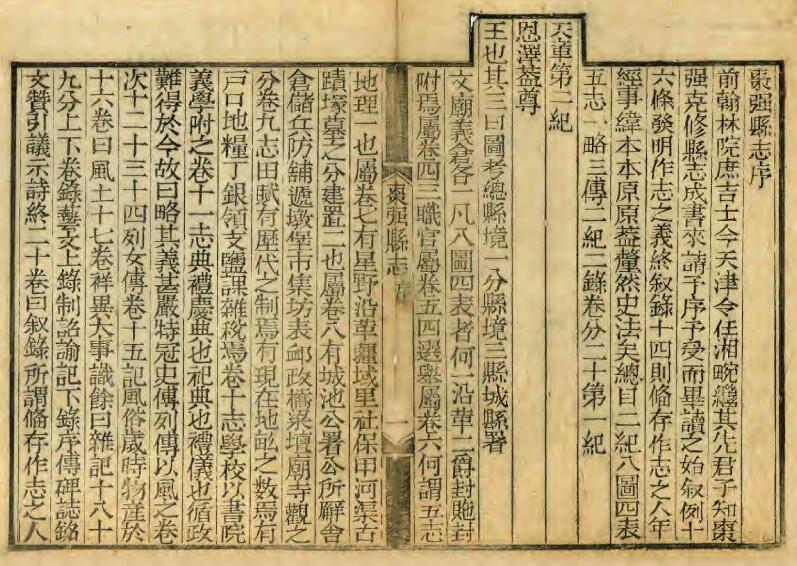 棗强縣志序
前翰林院庶吉士今天津令任湘畹繼其先君子知棗
强克修縣志成書來請予序予受而畢讀之始叙例十
六條發明作志之義終叙錄十四則偹存作志之人年
經事緯本本原原葢釐然史法矣總目二紀八圖四表
五志一略三傳二紀二錄卷分二十第一紀
天章第二紀
恩澤葢尊
王也其三曰圖考總縣境一分縣境三縣城縣署
文廟義倉各一凡八圖四表者何一沿革二爵封貤封
附焉屬卷四三職官屬卷五四選舉屬卷六何謂五志
棗强縣志 序 一
地理一也屬卷七有星野沿革疆域里社保甲河渠古
蹟塚墓之分建置二也屬卷八有城池公署公所廨舍
倉儲兵防舖遞墩堡市集坊表郵政橋梁壇廟寺觀之
分卷九志田賦有歷代之制焉有現在地畝之數焉有
戸口地糧丁銀領支鹽課雜稅焉卷十志學校以書院
義學附之卷十一志典禮慶典也祀典也禮儀也循政
難得於今故曰略其義甚嚴特冠史傳列傳以風之卷
次十二十三十四列女傳卷十五記風俗歲時物產於
十六卷曰風土十七卷祥異大事識餘曰雜記十八十
九分上下卷錄藝文上錄制詔諭記下錄序傳碑誌銘
文贊引議示詩終二十卷曰叙錄所謂偹存作志之人